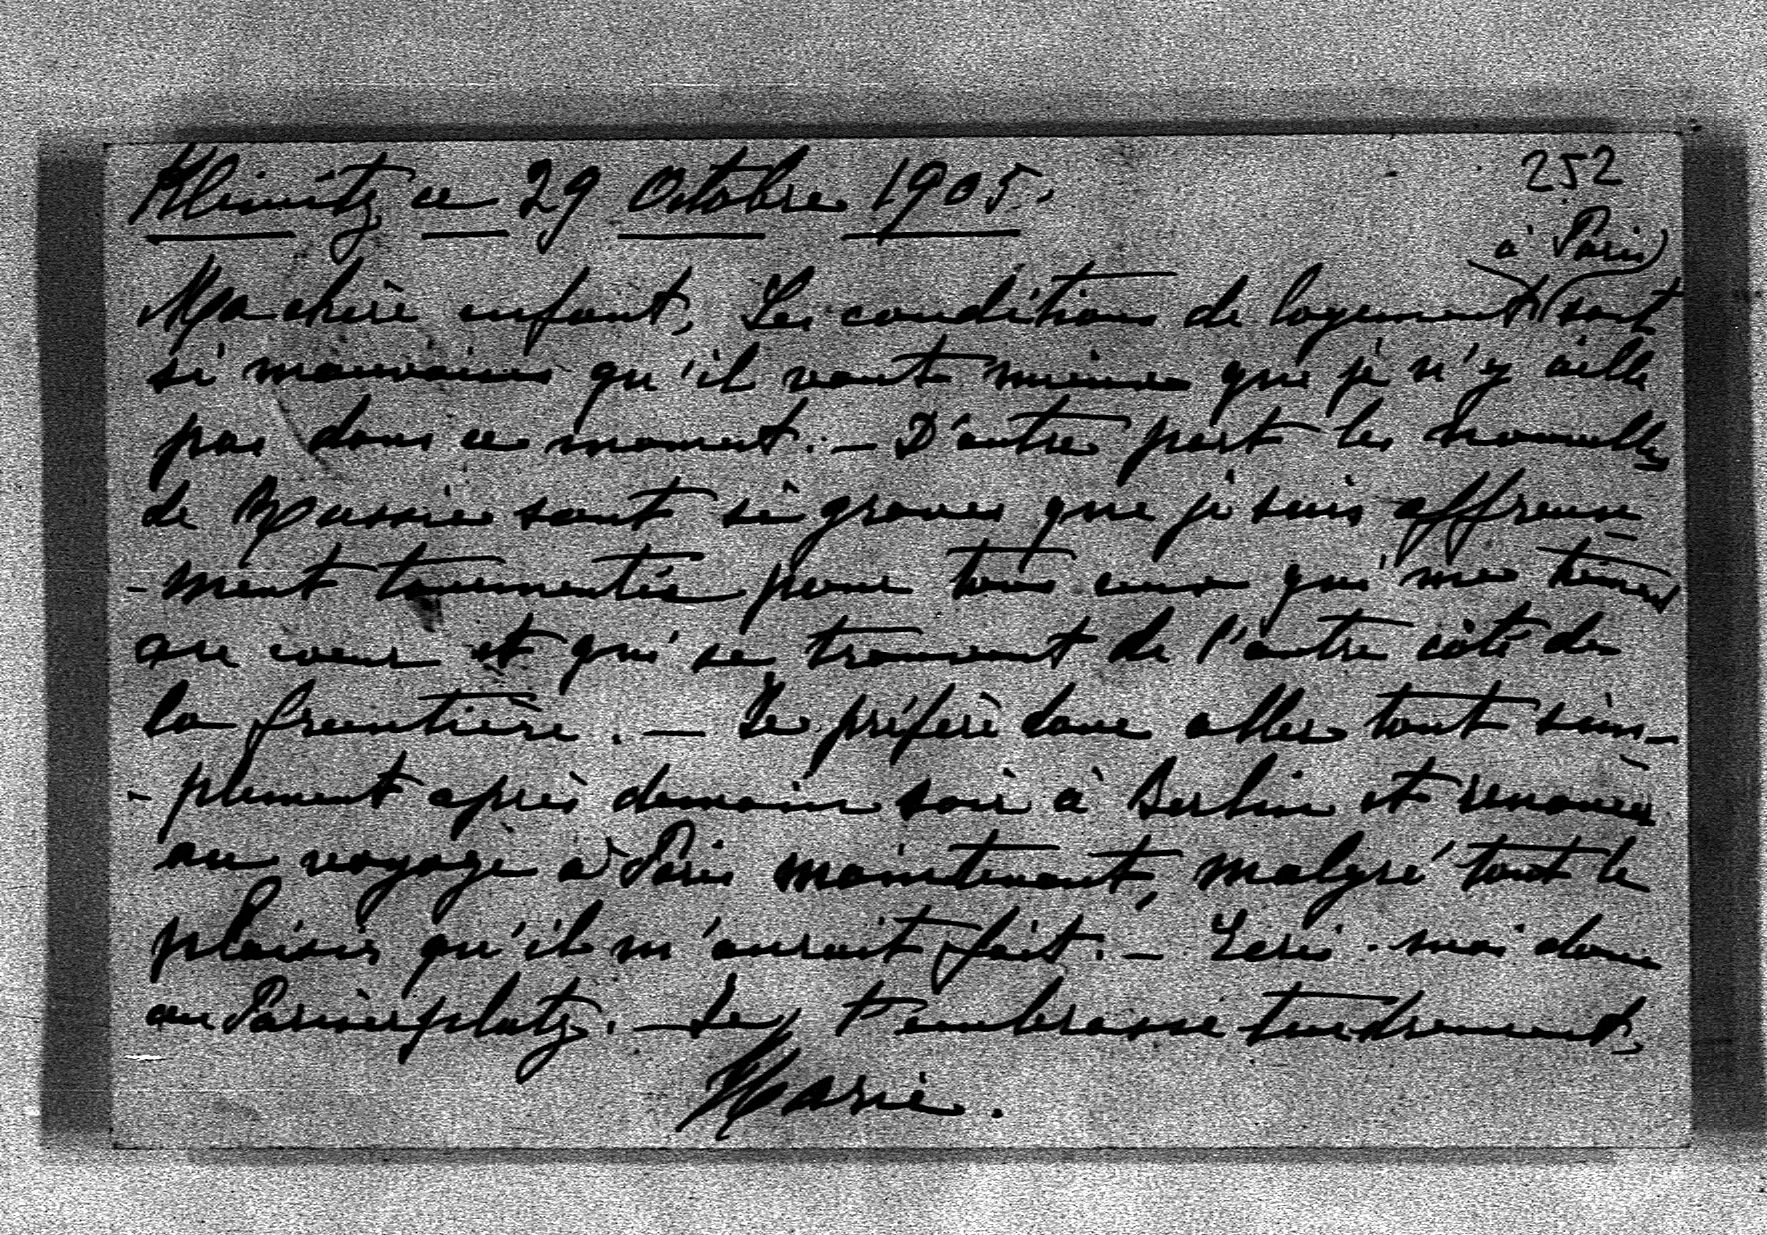 252
Kleinitz ce 29 Octobre 1905.
à Paris
Ma chère enfant, Les conditions de logement sont
si mauvaises qu'il vaut mieux que je n'y aille
pas dans ce moment. — D'autre part les nouvelles
de Russie sont si graves que je suis affreuse-
-ment tourmentée pour tous ceux qui me tiennent
au cœur et qui se trouvent de l'autre côté de
la frontière. — Je préfère donc aller tout sim-
-plement après demain soir à Berlin et renoncer
au voyage à Paris maintenant, malgré tout le
plaisir qu'il m'aurait fait. — Ecris-moi donc
au Pariserplatz. — Je t'embrasse tendrement,
Marie.